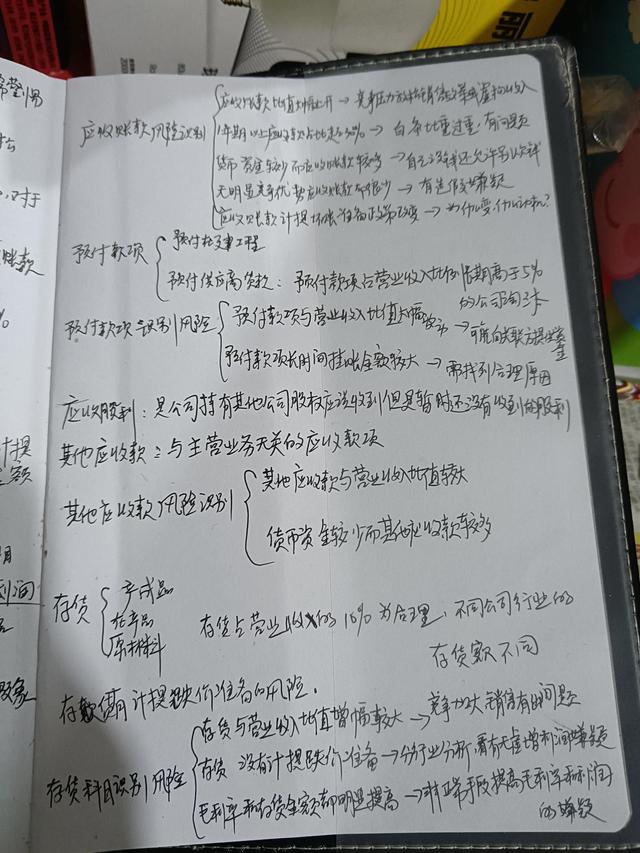 应收账款比值大幅上升 → 竞争压力 放松销售政策或虚构收入
1年期以上应收款占比超30% → 白条比重过重,有问题
应收账款风险识别
货币资金较少而应收账款较多 → 自己没钱还允许别人欠钱
无明显竞争优势应收账款却很少 → 有造假嫌疑
应收账款计提坏账准备政策改变 → 为什么变,什么时机?
预付款项
预付构建工程
预付供应商货款:预付款项占营业收入比例长期高于5%
的公司
预付款项识别风险
预付款项与营业收入比值大幅 → 可能向关联方提供资金
预付款项长时间挂账金额较大 → 需找到合理原因
应收股利:是公司持有其他公司股权应该收到但是暂时还没有收到的股利
其他应收款:与主营业务无关的应收款项
其他应收款风险识别
其他应收款与营业收入比值较大
货币资金较少而其他应收款较多
存货
产成品
在产品
原材料
存货占营业收入的10%为合理,不同公司行业的
存货额不同
计提跌价准备的风险.
存货与营业收入比值增幅较大 → 竞争加大 销售有问题
存货科目识别风险
存货 没有计提跌价准备 → 分行业分析,看有无虚增利润嫌疑
毛利率和存货金额都明显提高 → 非正常手段提高毛利率和利润
的嫌疑